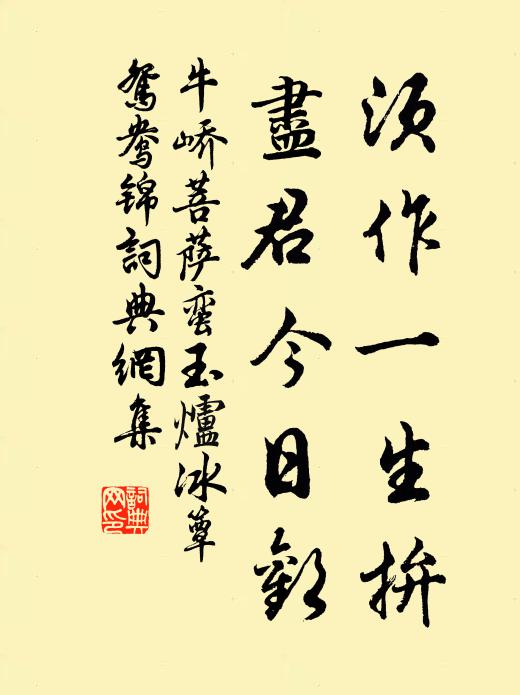 須作一生拚
盡君今日歡
牛嶠菩薩蛮玉爐冰簟
鴛鴦锦詞典網集
詞典
网印